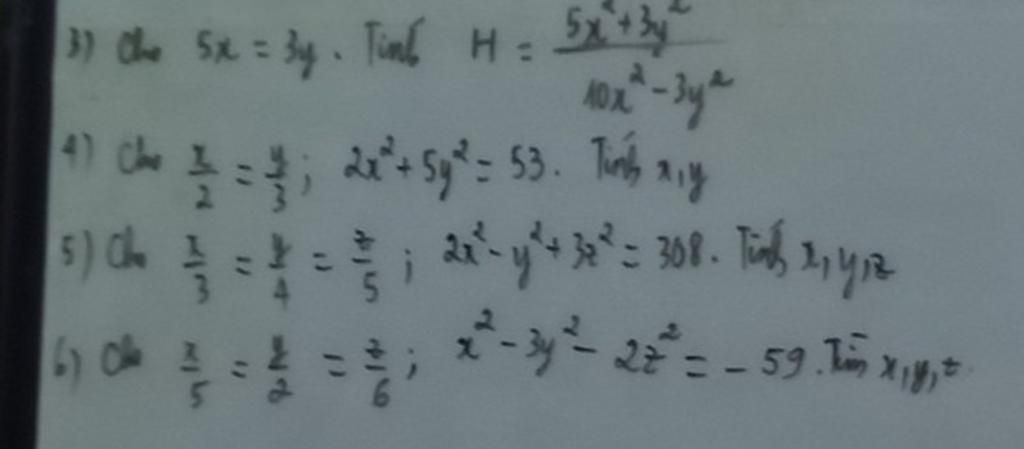 3) Cho 5x = 3y. Tính H = \frac{5x²+3y²}{10x²-3y²}
4) Cho \frac{x}{2} = \frac{y}{3}; 2x²+5y² = 53. Tính x,y
5) Cho \frac{x}{3} = \frac{y}{4} = \frac{z}{5}; 2x²-y²+3z² = 308. Tính x,y,z
6) Cho \frac{x}{5} = \frac{y}{2} = \frac{z}{6}; x²-3y²-2z² = -59. Tìm x,y,z.